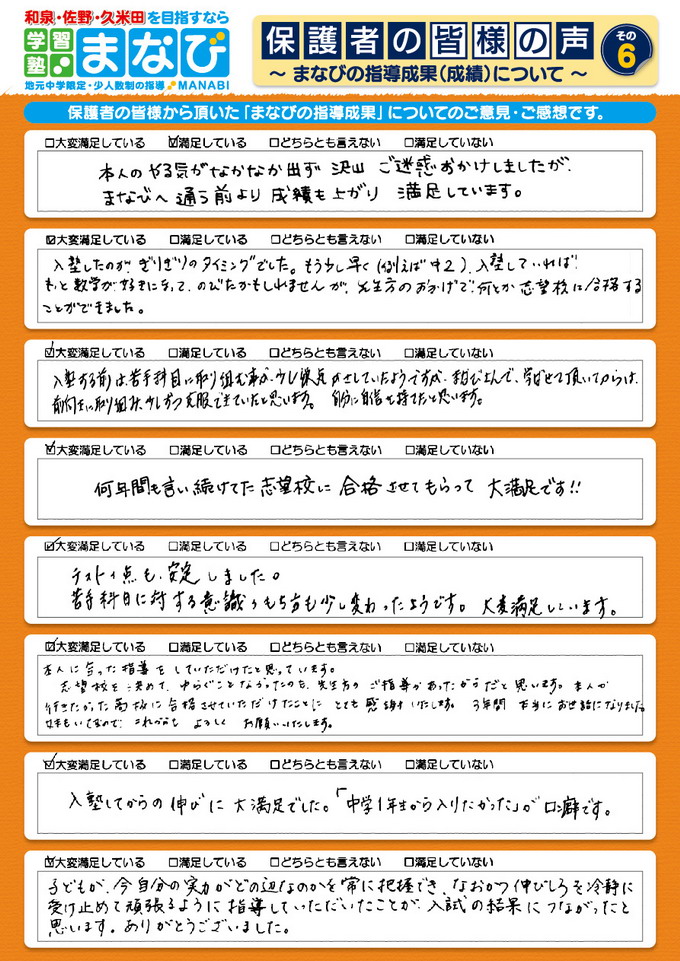 和泉・佐野・久米田を目指すなら
学習塾 まなび
地元中学限定・少人数制の指導 MANABI
保護者の皆様の声 その6
～ まなびの指導成果（成績）について ～
保護者の皆様から頂いた「まなびの指導成果」についてのご意見・ご感想です。
□大変満足している ☑満足している □どちらとも言えない □満足していない
本人のやる気がなかなか出ず 沢山 ご迷惑おかけしましたが、
まなびへ通う前より 成績も上がり 満足しています。
☑大変満足している □満足している □どちらとも言えない □満足していない
入塾したのが、ぎりぎりのタイミングでした。もう少し早く(例えば中2)、入塾していれば
もっと数学が好きになって、のびたかもしれませんが、先生方のおかげで何とか志望校に合格する
ことができました。
☑大変満足している □満足している □どちらとも言えない □満足していない
入塾する前は、苦手科目に取り組む事が、少し嫌気がさしていたようですが、まなびさんで、学ばせて頂いてからは、
前向きに取り組み、少しずつ克服できていたと思います。 自分に自信を持てたと思います。
☑大変満足している □満足している □どちらとも言えない □満足していない
何年間も言い続けてた志望校に 合格させてもらって 大満足です!!
☑大変満足している □満足している □どちらとも言えない □満足していない
テストの点も、安定しました。
苦手科目に対する意識のもち方も少し変わったようです。 大変満足しています。
☑大変満足している □満足している □どちらとも言えない □満足していない
本人に合った指導をしていただけたと思っています。
志望校を決めて、ゆらぐことなかったのも、先生方のご指導があったからだと思います。本人が
行きたかった高校に合格させていただけたことに とても感謝いたします。 3年間 本当にお世話になりました。
妹もいてるので、これからも よろしく お願いいたします。
☑大変満足している □満足している □どちらとも言えない □満足していない
入塾してからの伸びに大満足でした。「中学1年生から入りたかった」が口癖です。
☑大変満足している □満足している □どちらとも言えない □満足していない
子どもが、今自分の実力がどの辺なのかを常に把握でき、なおかつ伸びしろを冷静に
受け止めて頑張るように指導していただいたことが、入試の結果につながったと
思います。ありがとうございました。